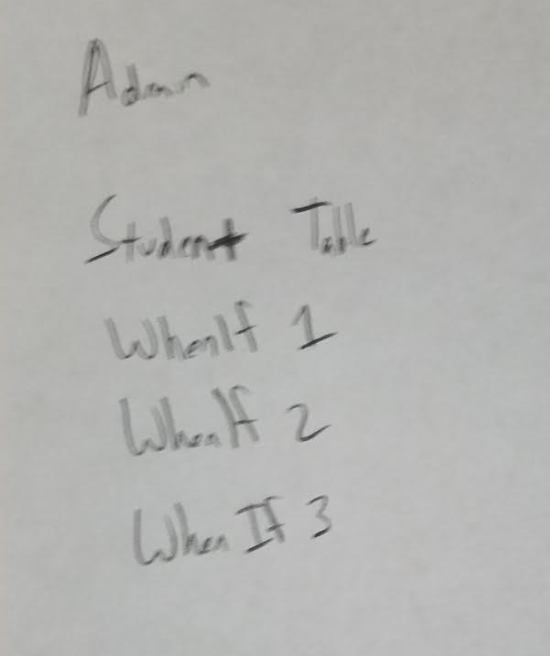 Admin
Student Table
WhenIf 1
WhenIf 2
When If 3